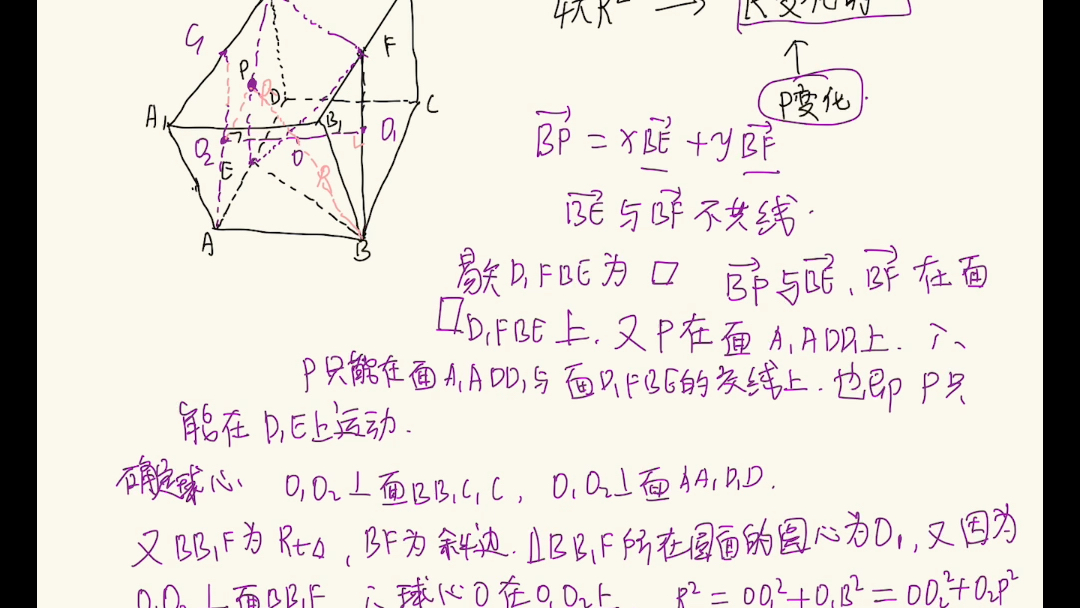 4πR² → R变化的
↑
P变化
G
P
F
R
D
C
A₁
B₁
O₁
O₂
E
O
R
A
B
BP = xBE + yBF
BE与BF不共线.
易知D₁FBE为▱ BP与BE、BF在面
▱D₁FBE上. 又P在面A₁ADD₁上. ∴
P只能在面A₁ADD₁与面D₁FBE的交线上. 也即P只
能在D₁E上运动.
确定球心 O₁O₂⊥面BB₁C₁C, O₁O₂⊥面AA₁D₁D.
又BB₁F为Rt△, BF为斜边. 且BB₁F所在圆面的圆心为O₁, 又因为
O₁O₂⊥面BB₁F ∴球心O在O₁O₂上. R² = OO₁² + O₁B² = OO₂² + O₂P²